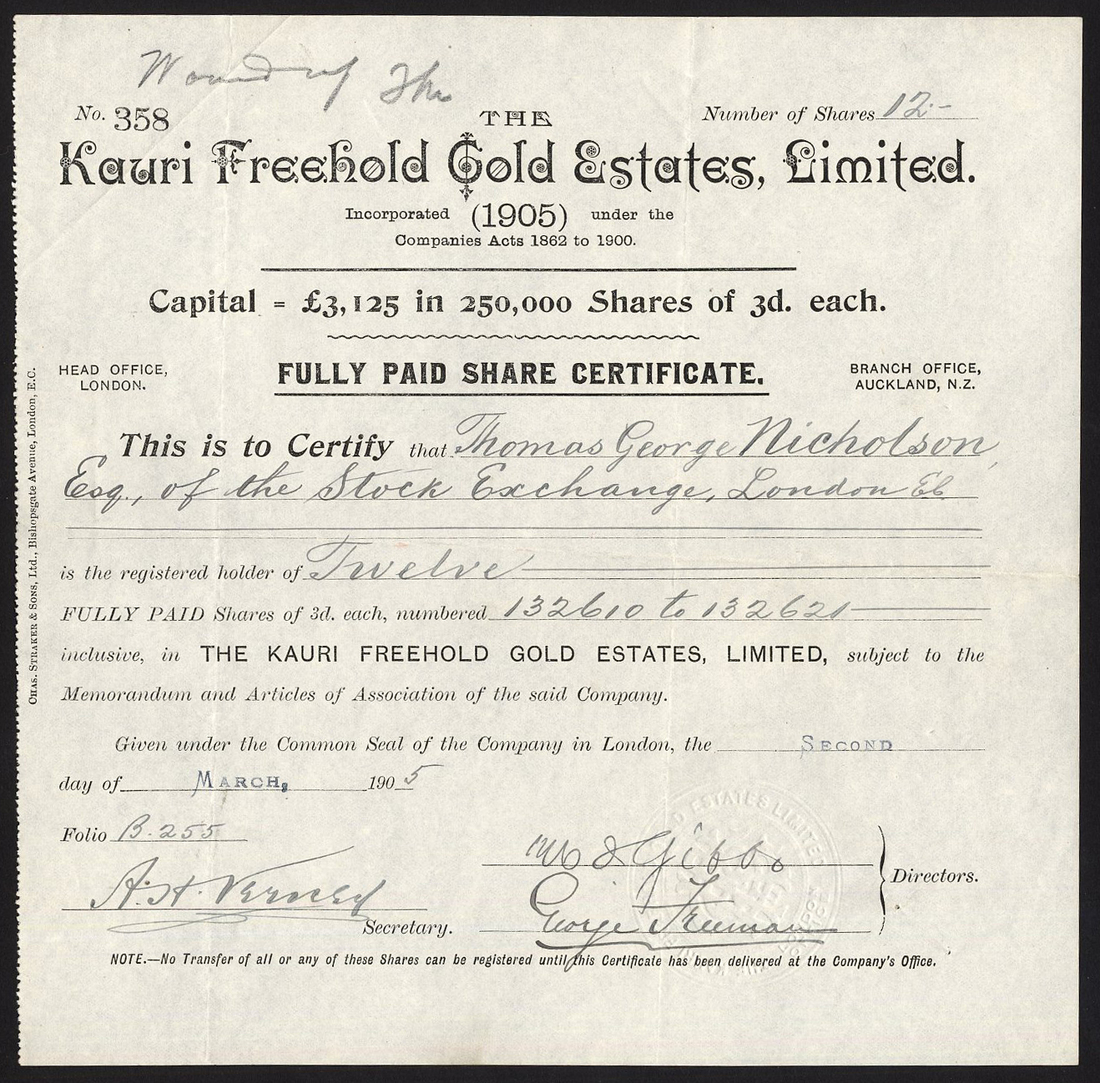 Wound up
No. 358
THE
Number of Shares 12.-
Kauri Freehold Gold Estates, Limited.
Incorporated (1905) under the
Companies Acts 1862 to 1900.
Capital = £3,125 in 250,000 Shares of 3d. each.
HEAD OFFICE,
LONDON.
FULLY PAID SHARE CERTIFICATE.
BRANCH OFFICE,
AUCKLAND, N.Z.
This is to Certify that Thomas George Nicholson,
Esq., of the Stock Exchange, London EC
is the registered holder of Twelve
FULLY PAID Shares of 3d. each, numbered 132610 to 132621
inclusive, in THE KAURI FREEHOLD GOLD ESTATES, LIMITED, subject to the
Memorandum and Articles of Association of the said Company.
Given under the Common Seal of the Company in London, the SECOND
day of MARCH, 1905
Folio B. 255
Gibbs
George Freeman
Directors.
A. H.
Secretary.
NOTE.—No Transfer of all or any of these Shares can be registered until this Certificate has been delivered at the Company's Office.
CHAS. STRAKER & SONS, Ltd., Bishopsgate Avenue, London, E.C.
ESTATES LIMITED